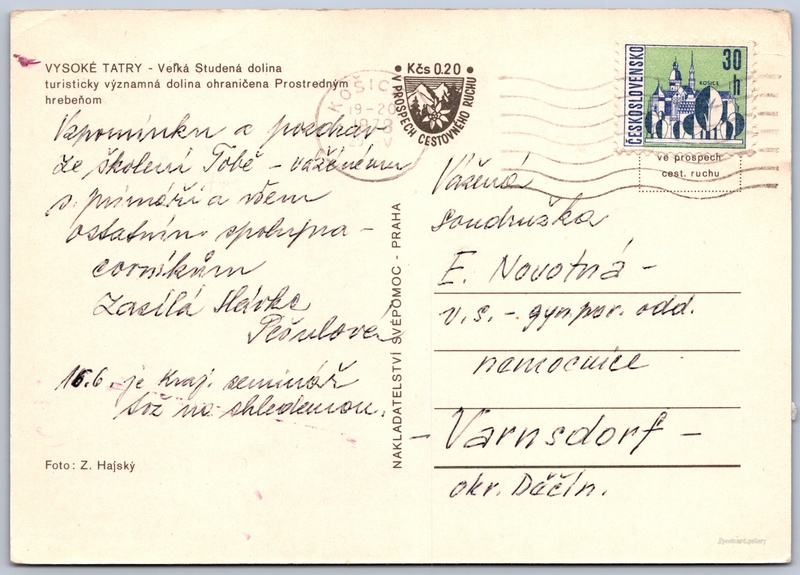 VYSOKÉ TATRY - Veľká Studená dolina
turisticky významná dolina ohraničena Prostredným
hrebeňom
Vzpomínku a pozdrav
ze školení Tobě - váženému
p. primáři a všem
ostatním spolupra-
covníkům
Zasílá Slávka
16.6 je Kraj. seminář
tož na shledanou.
Foto: Z. Hajský
NAKLADATELSTVÍ SVÉPOMOC - PRAHA
KOŠICE
19-20
• Kčs 0.20 •
V PROSPECH CESTOVNÉHO RUCHU
ČESKOSLOVENSKO
30 h
KOŠICE
ve prospech
cest. ruchu
Vážená
soudružka
E. Novotná -
v.s. - gyn. por. odd.
nemocnice
- Varnsdorf -
okr. Děčín.